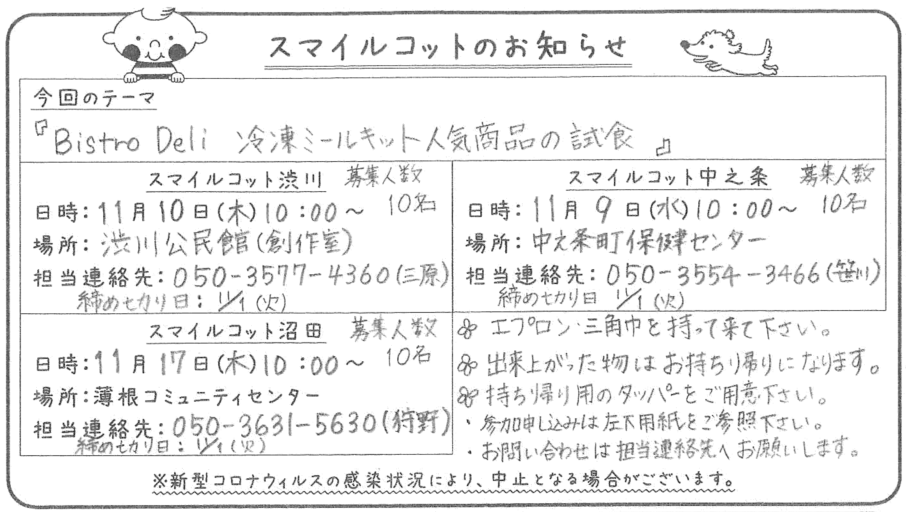 スマイルコットのお知らせ
今回のテーマ
『Bistro Deli 冷凍ミールキット人気商品の試食』
スマイルコット渋川 募集人数
日時：11月10日(木)10：00～ 10名
場所：渋川公民館(創作室)
担当連絡先：050-3577-4360(三原)
締め切り日：11/1(火)
スマイルコット中之条 募集人数
日時：11月9日(水)10：00～ 10名
場所：中之条町保健センター
担当連絡先：050-3554-3466(笹川)
締め切り日 11/1(火)
スマイルコット沼田 募集人数
日時：11月17日(木)10：00～ 10名
場所：薄根コミュニティセンター
担当連絡先：050-3631-5630(狩野)
締め切り日：11/1(火)
エプロン・三角巾を持って来て下さい。
出来上がった物はお持ち帰りになります。
持ち帰り用のタッパーをご用意下さい。
・参加申し込みは左下用紙をご参照下さい。
・お問い合わせは担当連絡先へお願いします。
※新型コロナウィルスの感染状況により、中止となる場合がございます。